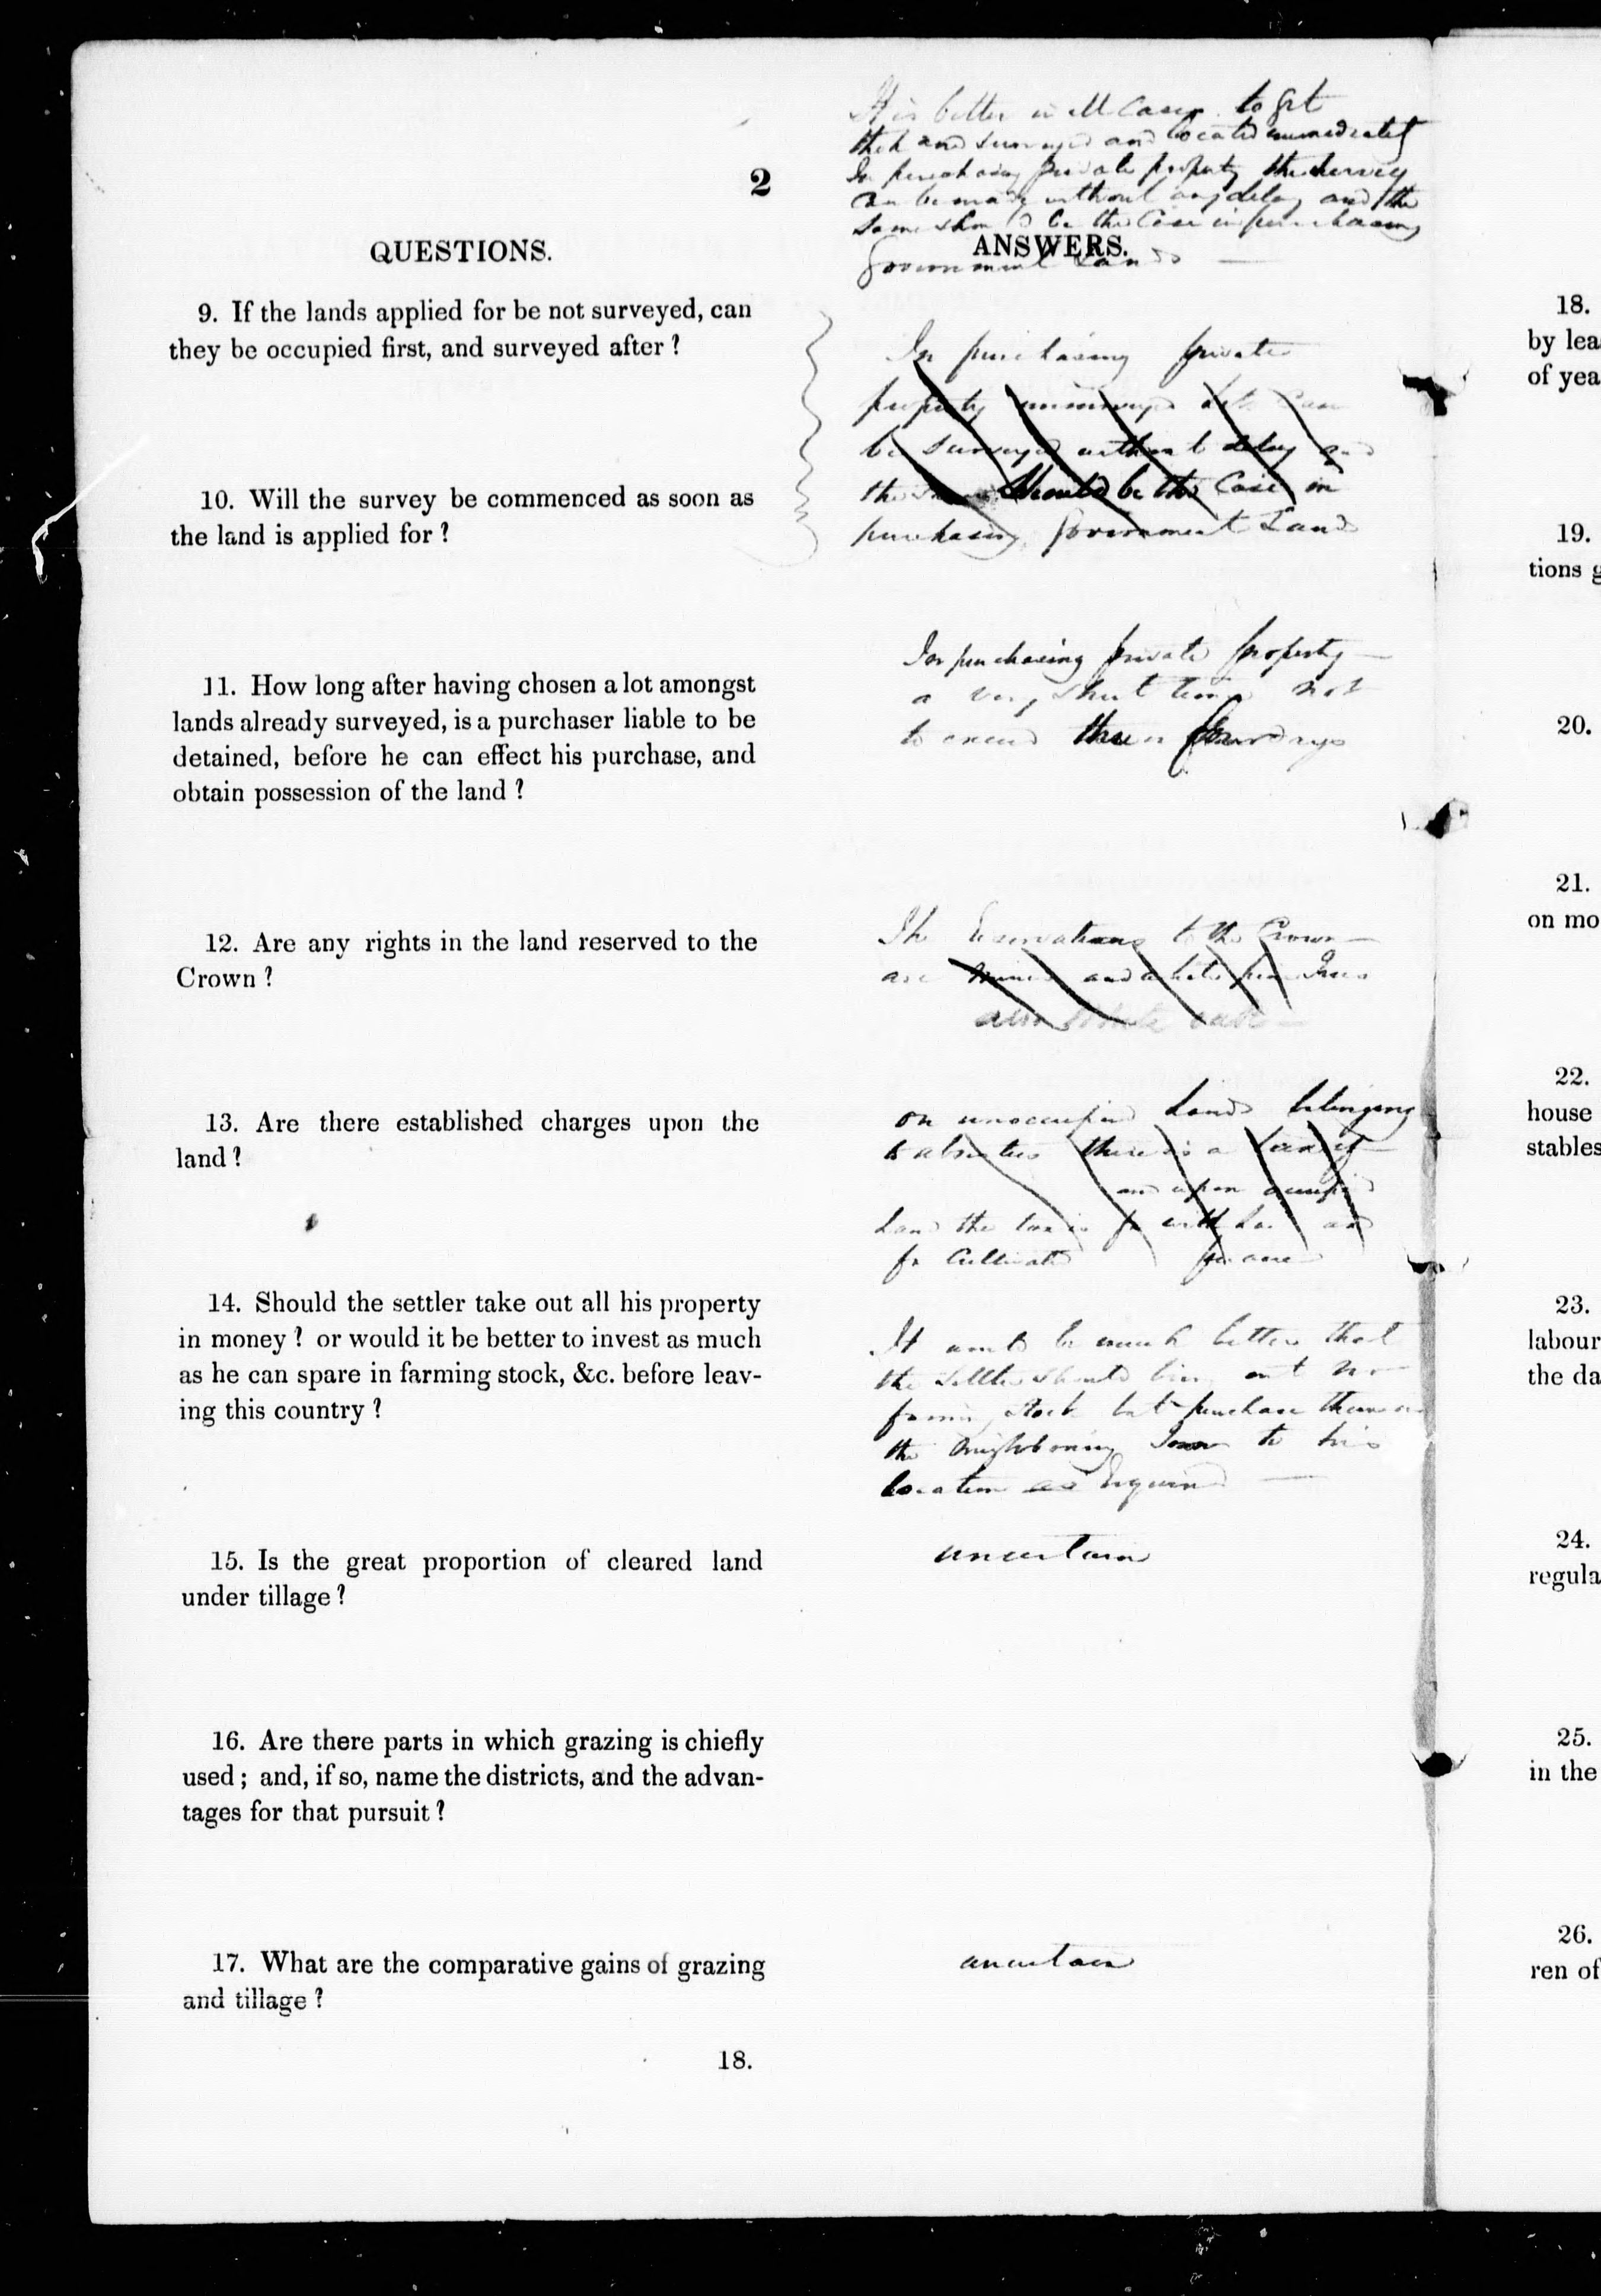 It is better in all Cases to get
the Land surveyed and located immediately
In purchasing private property the survey
can be made without any delay and the
same should be the Case in purchasing
Government Lands
2
QUESTIONS.
ANSWERS.
9. If the lands applied for be not surveyed, can
they be occupied first, and surveyed after ?
In purchasing private
property unsurveyed Lots can
be surveyed without delay and
the same should be the Case in
purchasing Government Land
10. Will the survey be commenced as soon as
the land is applied for ?
11. How long after having chosen a lot amongst
lands already surveyed, is a purchaser liable to be
detained, before he can effect his purchase, and
obtain possession of the land ?
In purchasing private property
a very short time not
to exceed three or four days
12. Are any rights in the land reserved to the
Crown ?
The Reservations to the Crown
are mines and white pine Trees
also white oak
13. Are there established charges upon the
land ?
on unoccupied Lands belonging
to absentees there is a tax of
and upon occupied
Land the tax is for and
for Cultivated per acre
14. Should the settler take out all his property
in money ? or would it be better to invest as much
as he can spare in farming stock, &c. before leav-
ing this country ?
It would be much better that
the Settler should bring out no
farming Stock but purchase them in
the neighbouring Town to his
location as required
15. Is the great proportion of cleared land
under tillage ?
uncertain
16. Are there parts in which grazing is chiefly
used ; and, if so, name the districts, and the advan-
tages for that pursuit ?
17. What are the comparative gains of grazing
and tillage ?
uncertain
18.
18.
by lea
of yea
19.
tions g
20.
21.
on mo
22.
house
stables
23.
labour
the da
24.
regula
25.
in the
26.
ren of